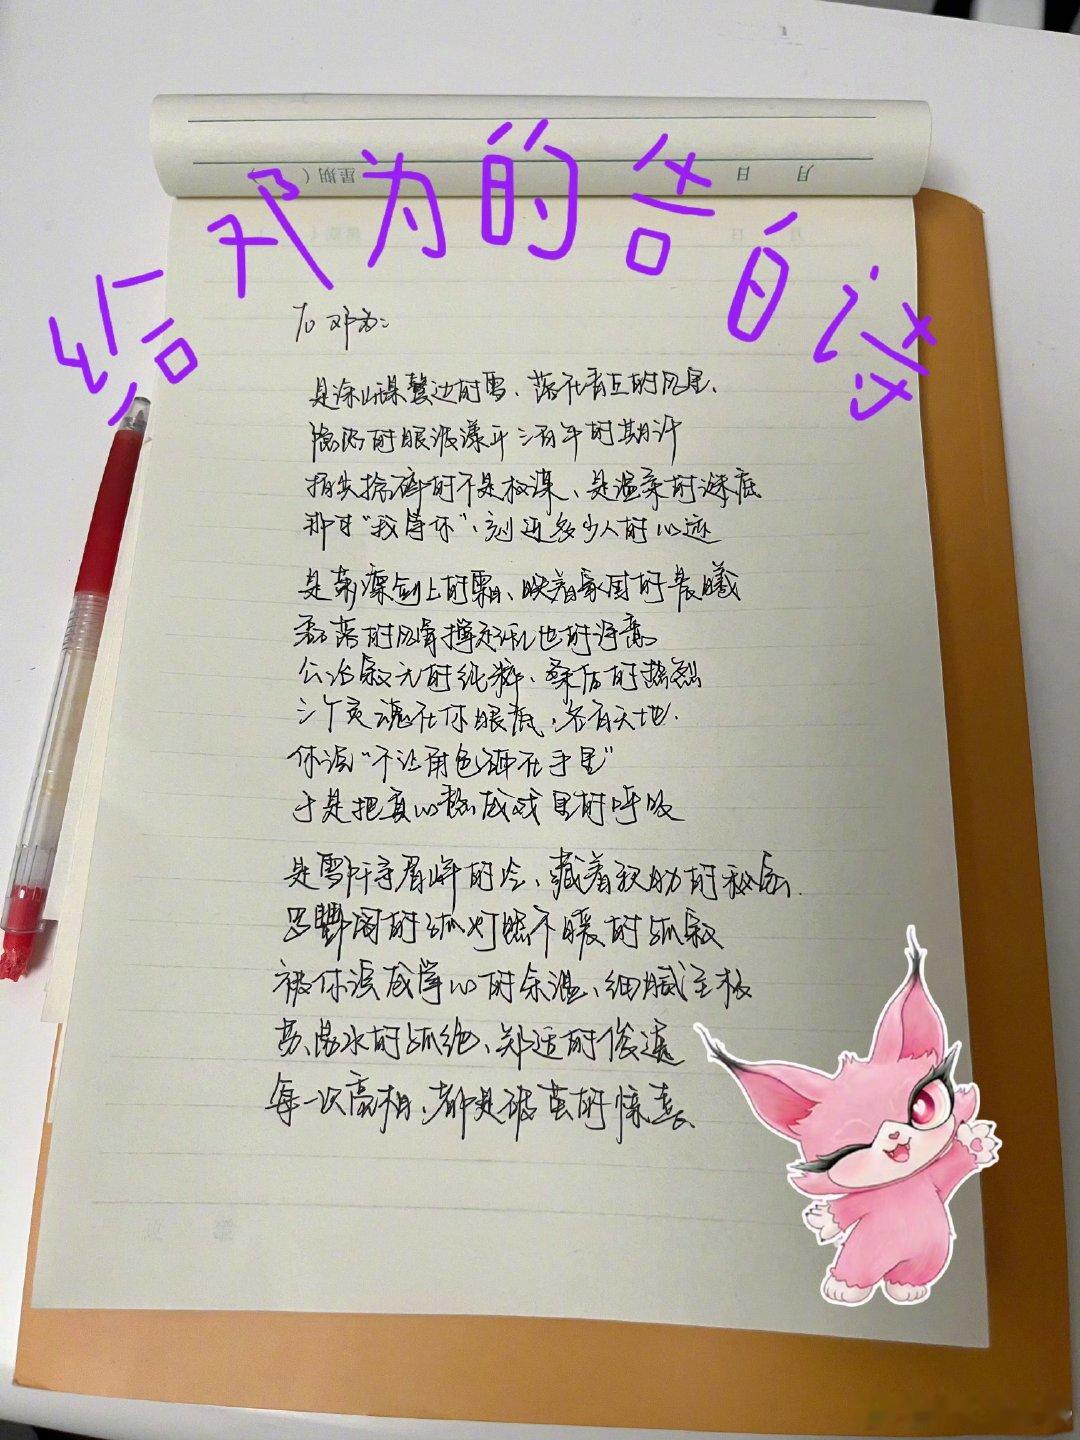 给邓为的告白诗
月 日 星期(
To 邓为:
是涂山璟鬓边的雪、落在青丘的风里、
隐忍的眼波漾开三百年的期许
指尖捻碎的不是权谋、是温柔的深底
那句“我等你”、刻进多少人的心迹
是萧凛剑上的霜、映着家国的晨曦
零落的风骨撑起乱世的
公冶寂无的纯粹、桑佑的热烈
三个灵魂在你眼底、各有天地.
你说“不让角色砸在手里”
于是把真心揉成戏里的呼吸
是雪 寻眉峰的冷、藏着 的秘密.
阁的孤灯照不暖的孤寂
被你演成掌心的余温、细腻注极
易水的孤绝、郑适的俊逸
每一次亮相、都是破茧的惊喜、